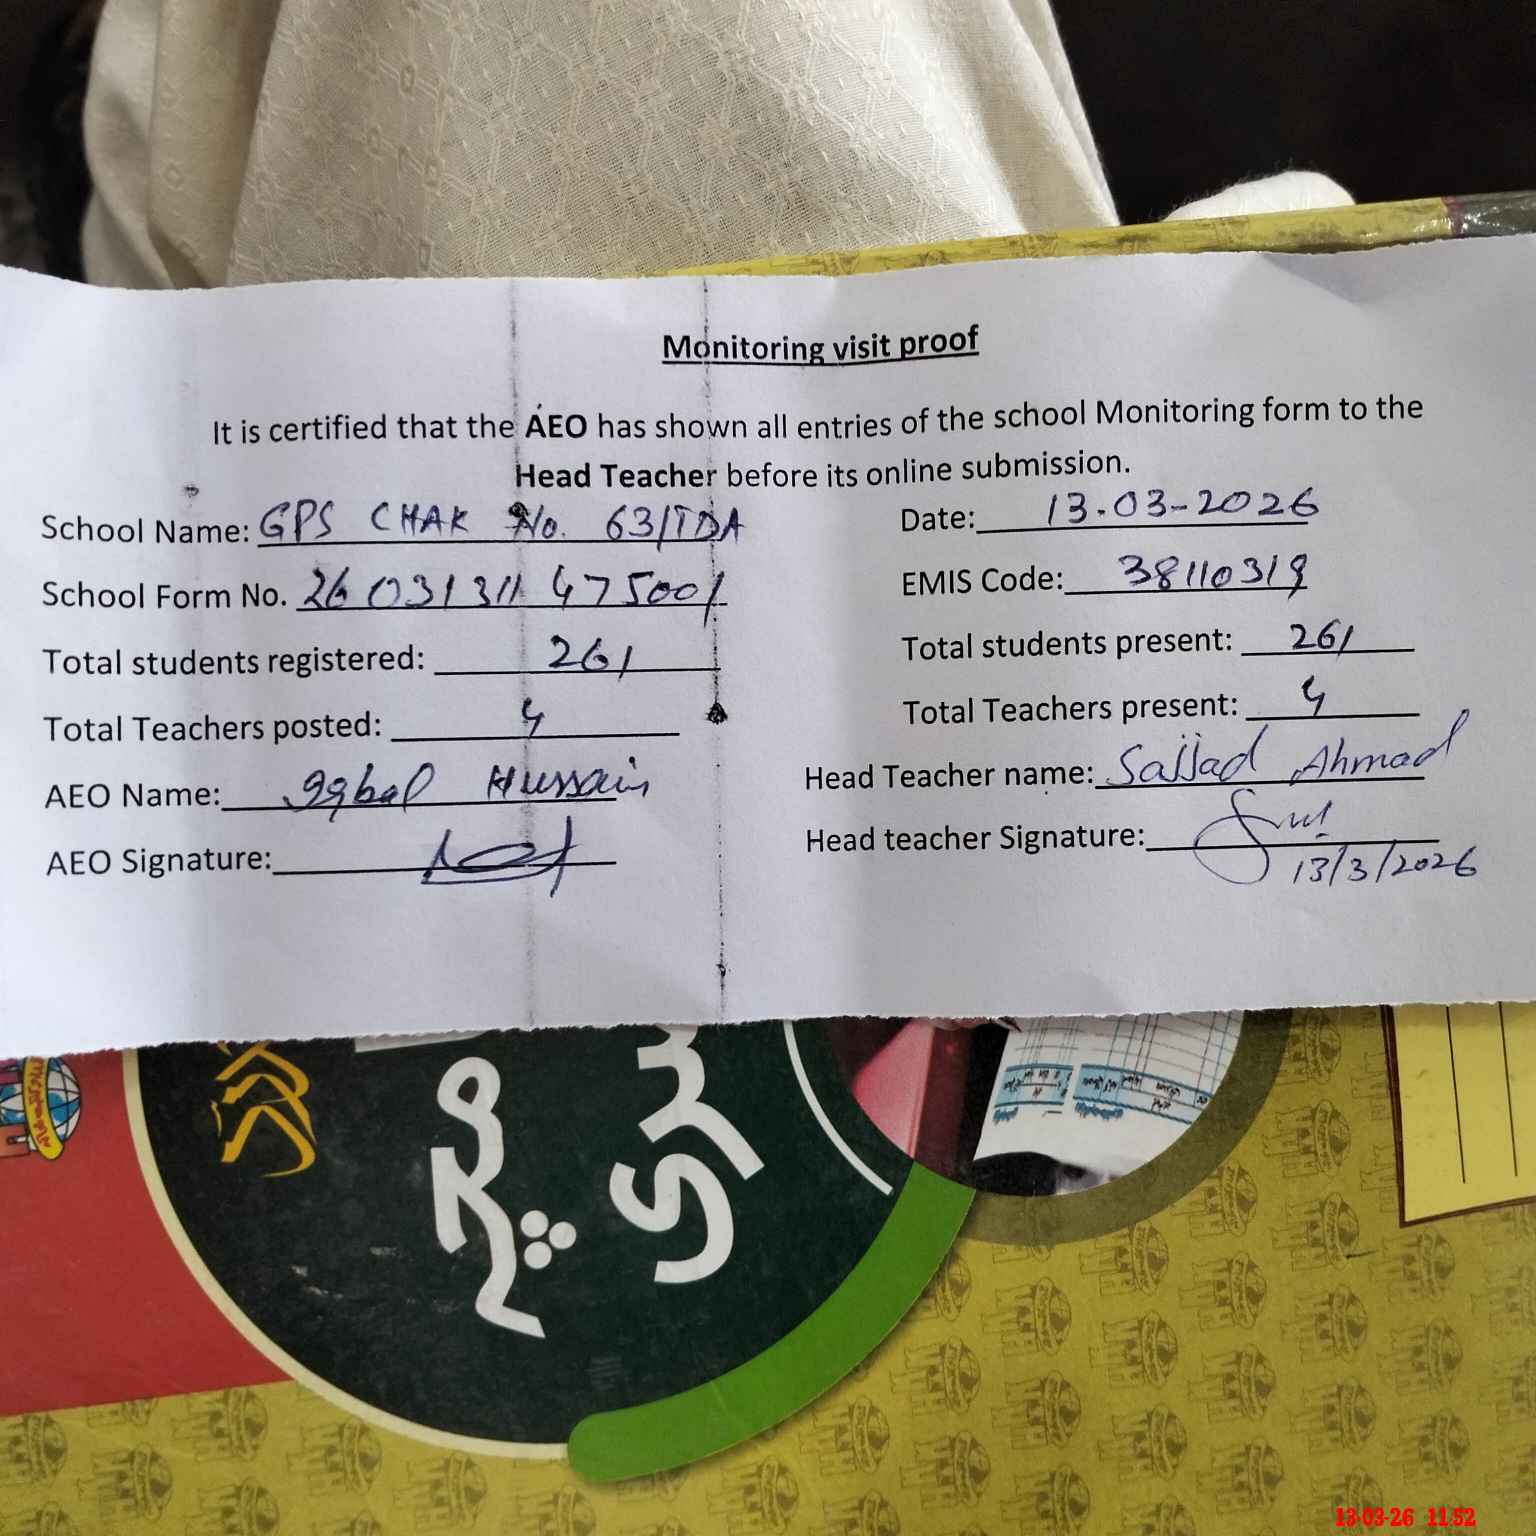 Monitoring visit proof
It is certified that the AEO has shown all entries of the school Monitoring form to the
Head Teacher before its online submission.
School Name: GPS CHAK No. 63/TDA
Date: 13-03-2026
School Form No. 26031311475001
EMIS Code: 38110319
Total students registered: 261
Total students present: 261
Total Teachers posted: 4
Total Teachers present: 4
AEO Name: Iqbal Hussain
Head Teacher name: Sajjad Ahmad
AEO Signature:
Head teacher Signature:
13/3/2026
13-03-26 11:52